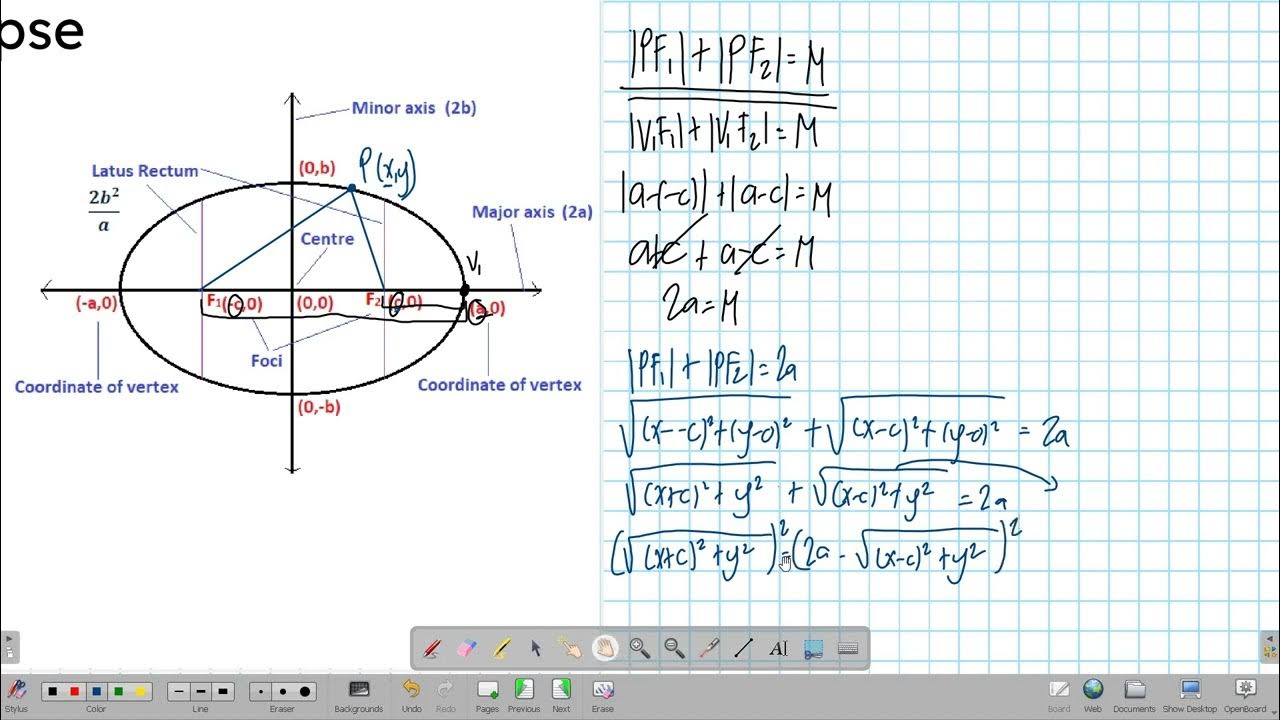 pse
Minor axis (2b)
Latus Rectum
(0,b)
P(x,y)
2b²/a
Major axis (2a)
Centre
V₁
(-a,0)
F₁(-c,0)
(0,0)
F₂(c,0)
(a,0)
Foci
Coordinate of vertex
Coordinate of vertex
(0,-b)
|PF₁| + |PF₂| = M
|V₁F₁| + |V₁F₂| = M
|a-(-c)| + |a-c| = M
a+c + a-c = M
2a = M
|PF₁| + |PF₂| = 2a
√(x--c)²+(y-0)² + √(x-c)²+(y-0)² = 2a
√(x+c)²+y² + √(x-c)²+y² = 2a
(√(x+c)²+y²)² = (2a - √(x-c)²+y²)²
AI
Stylus
Color
Line
Eraser
Backgrounds
Undo
Redo
Pages
Previous
Next
Erase
Board
Web
Documents
Show Desktop
OpenBoard